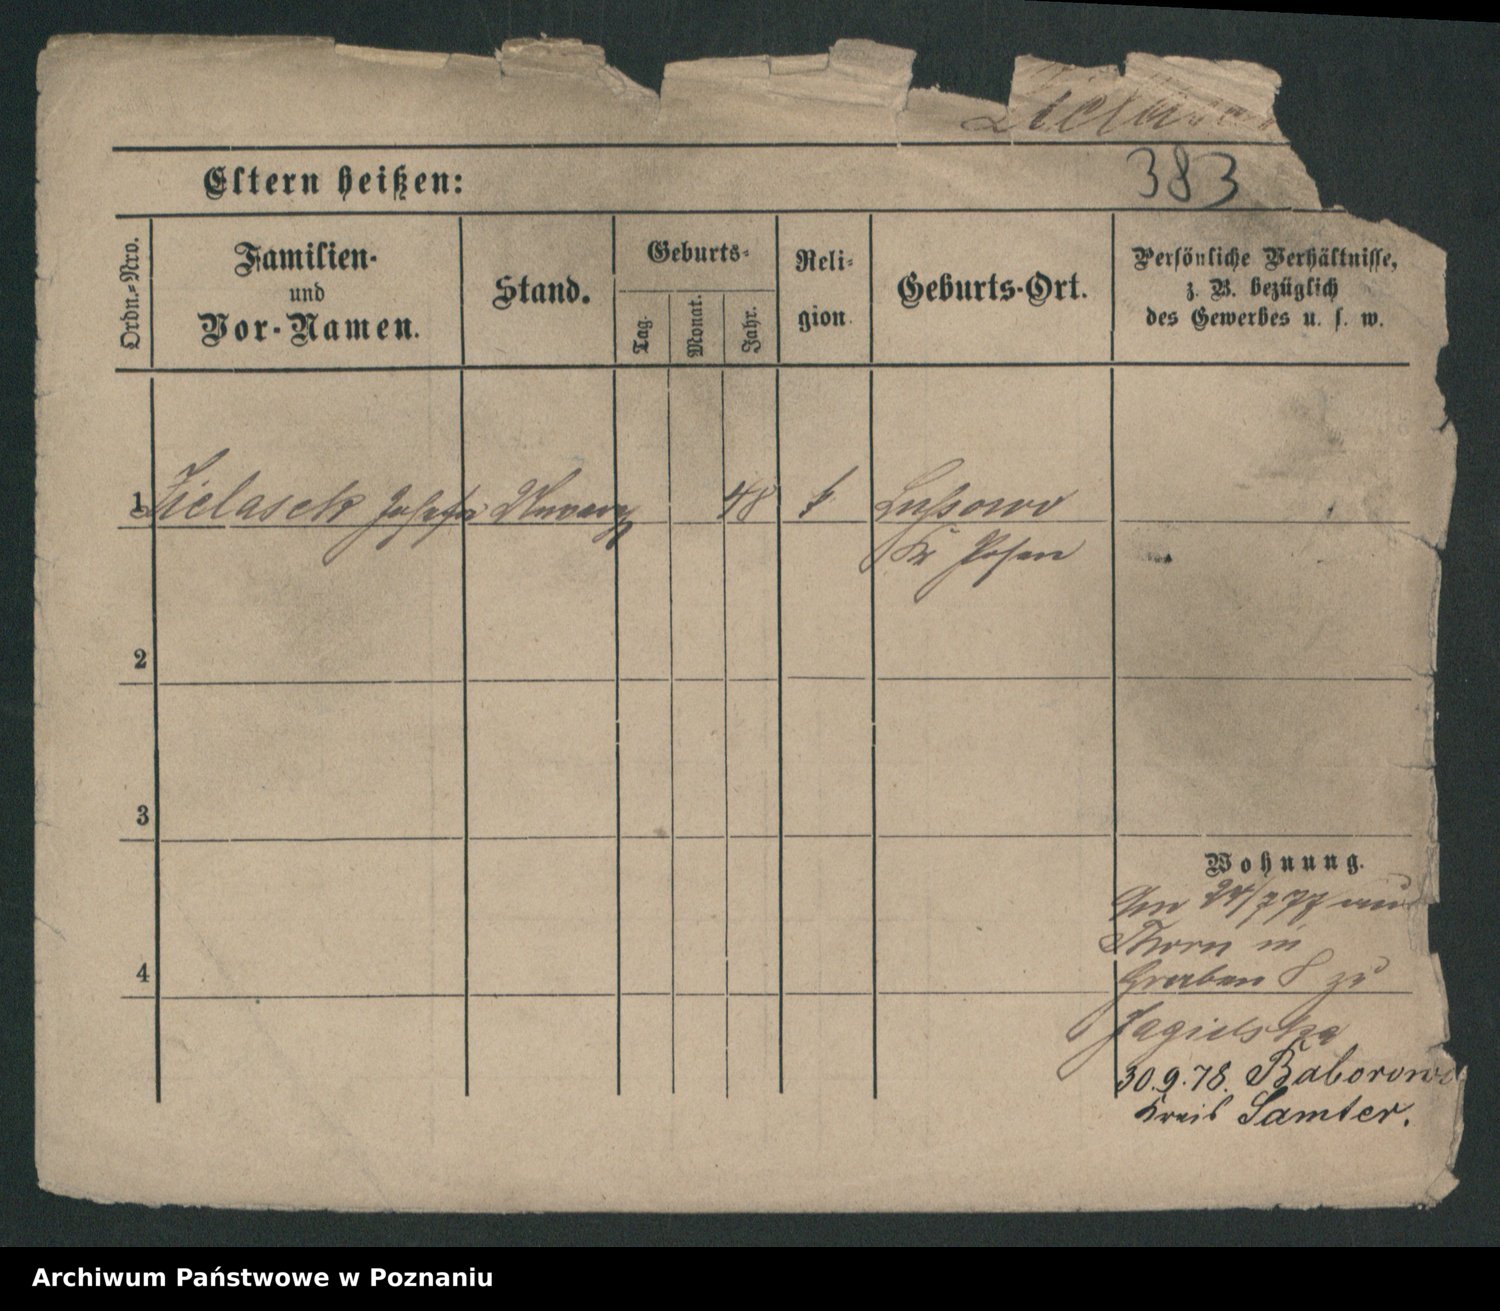 Zielasek
383
Eltern heißen:
Ordn.-Nro.
Familien-
und
Vor-Namen.
Stand.
Geburts-
Tag.
Monat.
Jahr.
Reli-
gion.
Geburts-Ort.
Persönliche Verhältnisse,
z. B. bezüglich
des Gewerbes u. s. w.
1 Zielasek Josefa 48 k Lussowo
Kr Posen
2
3
Wohnung.
Am 24/7 77 aus
Thorn in
4 Graben 8 zu
Jagielska
30.9.78. Baborowo
Kreis Samter.
Archiwum Państwowe w Poznaniu